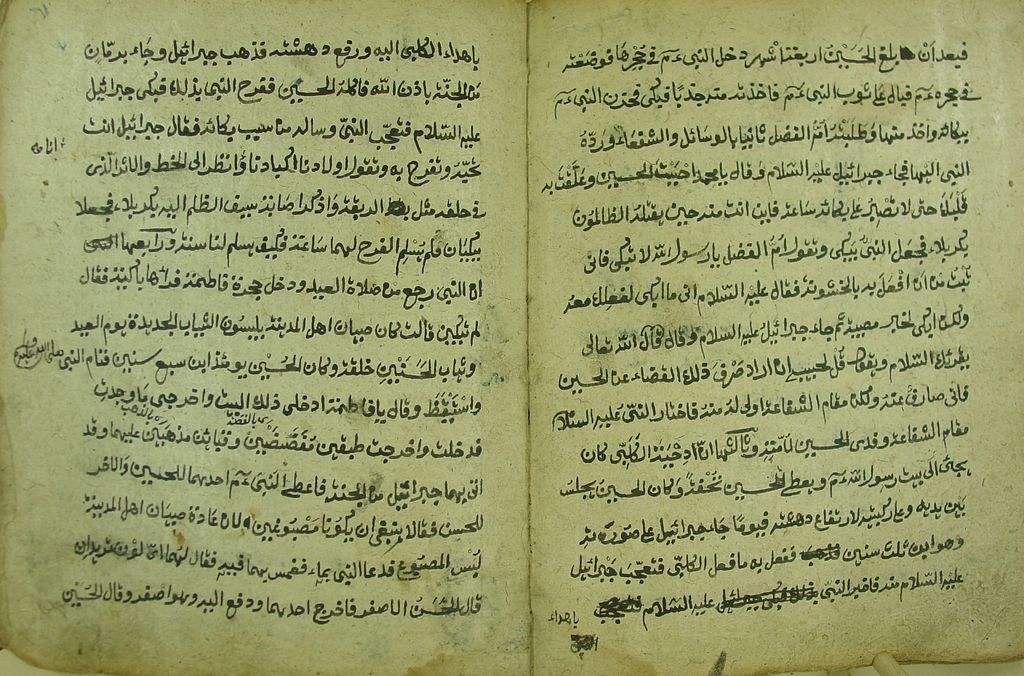 فبعد ان بلغ الحسين اربعة اشهر دخل النبى ءم فى حجرها فوضعته
فى حجره ءم فبال على ثوب النبى ءم فاخذته منه جذبا فبكى فحزن النبى ءم
ببكائه واخذ منها وطلبته ام الفضل ثانيا بالوسائل والشفعاء ورده
النبى اليها فجاء جبرائيل عليه السلام فقال يا محمد احببت الحسين وعلقت به
قلبك حتى لا تصبر على بكائه ساعة فاين انت منه حين يقتله الظالمون
بكربلاء فجعل النبى يبكى وتقول ام الفضل يا رسول الله لا تبكى فانى
تبت من ان افعل به بالخشونة فقال عليه السلام انى ما ابكى لفعلك معه
ولكن ابكى لخبر مصيبة ثم جاء جبرائيل عليه السلام وقال قال الله تعالى
يقرئك السلام ويقول قل لحبيبى ان اراد صرف ذلك القضاء عن الحسين
فانى صارف عنه ولكن مقام الشفاعة اولى له منه فاختار النبى عليه السلام
مقام الشفاعة وفدى الحسين لامته وثالثها ان دحية الكلبى كان
يجئ الى بيت رسول الله ءم ويعطى الحسين تحفة وكان الحسين يجلس
بين يديه وعلى ركبته لارتفاع دهشته فيوما جاء جبرائيل على صورته
وهو ابن ثلث سنين ففعل به ما فعل الكلبى فتعجب جبرائيل
عليه السلام منه فاخبر النبى عليه السلام
باهداء
باهداء الكلبى اليه ورفع دهشته فذهب جبرائيل وجاء برمان
من الجنة باذن الله فاكله الحسين ففرح النبى بذلك فبكى جبرائيل
عليه السلام فتعجب النبى وساله من سبب بكائه فقال جبرائيل انت
تحبه وتفرح به وتقول اولادنا اكبادنا وانظر الى الخط والاثر الذى
فى حلقه مثل الريقة واذكر اصابة سيف الظلم اليه بكربلاء فجعلا
يبكيان فلم يسلم الفرح لهما ساعة فكيف يسلم لنا سنة ورابعها
ان النبى رجع من صلاة العيد ودخل حجرة فاطمة فراها باكية فقال
لم تبكين قالت كان صبيان اهل المدينة يلبسون الثياب الجديدة يوم العيد
وثياب الحسنين خلقة وكان الحسين يومئذ ابن سبع سنين فنام النبى صلى الله عليه وسلم
واستيقظ وقال يا فاطمة ادخلى ذلك البيت واخرجى ما وجدت
فدخلت واخرجت طبقين مفضضين وفيا مذهبين عليهما وقد
اتى بهما جبرائيل من الجنة فاعطى النبى ءم احدهما للحسين والاخر
للحسن فقالا ينبغى ان يكونا مصبوغين لان عادة صبيان اهل المدينة
لبس المصبوغ فدعا النبى بماء فغمس بهما فيه فقال لهما اى لون تريدان
قال الحسن الاصفر فاخرج احدهما ودفع اليه وهو اصفر وقال الحسين